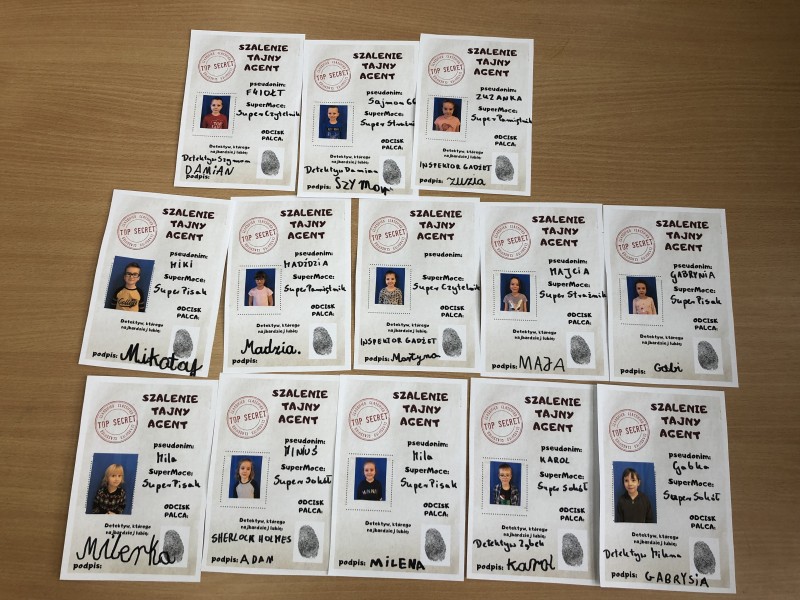 SZALENIE
TAJNY
AGENT
TOP SECRET
pseudonim:
FYIOŁT
SuperMoce:
SuperCzytelnik
ODCISK
PALCA:
Detektyw, którego
najbardziej lubię:
Detektyw Szymon
DAMIAN
podpis:
SZALENIE
TAJNY
AGENT
TOP SECRET
pseudonim:
Sajmon66
SuperMoce:
Super Strażnik
ODCISK
PALCA:
Detektyw, którego
najbardziej lubię:
Detektyw Damian
podpis: SZYMON
SZALENIE
TAJNY
AGENT
TOP SECRET
pseudonim:
ZUZANKA
SuperMoce:
SuperPamiętnik
ODCISK
PALCA:
Detektyw, którego
najbardziej lubię:
INSPEKTOR GADŻET
podpis: Zuzia
SZALENIE
TAJNY
AGENT
TOP SECRET
pseudonim:
MIKI
SuperMoce:
SuperPisak
ODCISK
PALCA:
Detektyw, którego
najbardziej lubię:
podpis: Mikołaj
SZALENIE
TAJNY
AGENT
TOP SECRET
pseudonim:
MADZDZIA
SuperMoce:
SuperPamiętnik
ODCISK
PALCA:
Detektyw, którego
najbardziej lubię:
podpis: Madzia.
SZALENIE
TAJNY
AGENT
TOP SECRET
pseudonim:
SuperMoce:
Super Czytelnik
ODCISK
PALCA:
Detektyw, którego
najbardziej lubię:
INSPEKTOR GADŻET
podpis: Martyna
SZALENIE
TAJNY
AGENT
TOP SECRET
pseudonim:
MAJCIA
SuperMoce:
Super Strażnik
ODCISK
PALCA:
Detektyw, którego
najbardziej lubię:
podpis: MAJA
SZALENIE
TAJNY
AGENT
TOP SECRET
pseudonim:
GABRYNIA
SuperMoce:
SuperPisak
ODCISK
PALCA:
Detektyw, którego
najbardziej lubię:
podpis: Gabi
SZALENIE
TAJNY
AGENT
TOP SECRET
pseudonim:
Mila
SuperMoce:
SuperPisak
ODCISK
PALCA:
Detektyw, którego
najbardziej lubię:
Milenka
podpis:
SZALENIE
TAJNY
AGENT
TOP SECRET
pseudonim:
MINUS
SuperMoce:
Super Sokół
ODCISK
PALCA:
Detektyw, którego
najbardziej lubię:
SHERLOCK HOLMES
podpis: ADAM
SZALENIE
TAJNY
AGENT
TOP SECRET
pseudonim:
Mila
SuperMoce:
SuperPisak
ODCISK
PALCA:
Detektyw, którego
najbardziej lubię:
podpis: MILENA
SZALENIE
TAJNY
AGENT
TOP SECRET
pseudonim:
KAROL
SuperMoce:
Super Sokół
ODCISK
PALCA:
Detektyw, którego
najbardziej lubię:
Detektyw Ząbek
podpis: Karol
SZALENIE
TAJNY
AGENT
TOP SECRET
pseudonim:
Gabka
SuperMoce:
Super Sokół
ODCISK
PALCA:
Detektyw, którego
najbardziej lubię:
Detektyw Milena
podpis: GABRYSIA